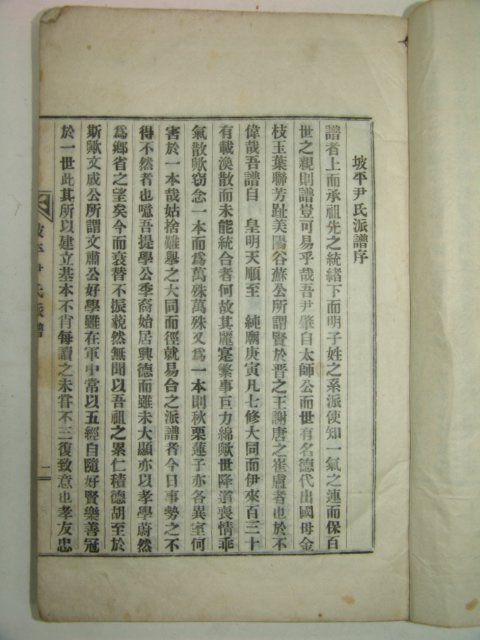 坡平尹氏派譜序
譜者上而承祖先之統緖下而明子姓之系派使知一氣之連而保百
世之親則譜豈可易乎哉吾尹肇自太師公而世有名德代出國母金
枝玉葉聯芳趾美陽谷蘇公所謂賢於晋之王謝唐之崔盧者也於不
偉哉吾譜自 皇明天順至 純廟庚寅凡七修大同而伊來百三十
有載渙散而未能統合者何故其麗寔繁事巨力綿歟世降道喪情乖
氣散歟窃念一本而爲萬殊萬殊又爲一本則秋栗蓮子亦各異室何
害於一本哉姑捨難擧之大同而徑就易合之派譜者今日事勢之不
得不然者也噫吾提學公季裔始居興德而雖未大顯亦以孝學蔚然
爲鄕省之望矣今而衰替不振藐然無聞以吾祖之累仁積德胡至於
斯歟文成公所謂文肅公好學雖在軍中常以五經自隨好賢樂善冠
於一世此其所以建立基本不肯每讀之未嘗不三復致意也孝友忠
坡平尹氏派譜
一